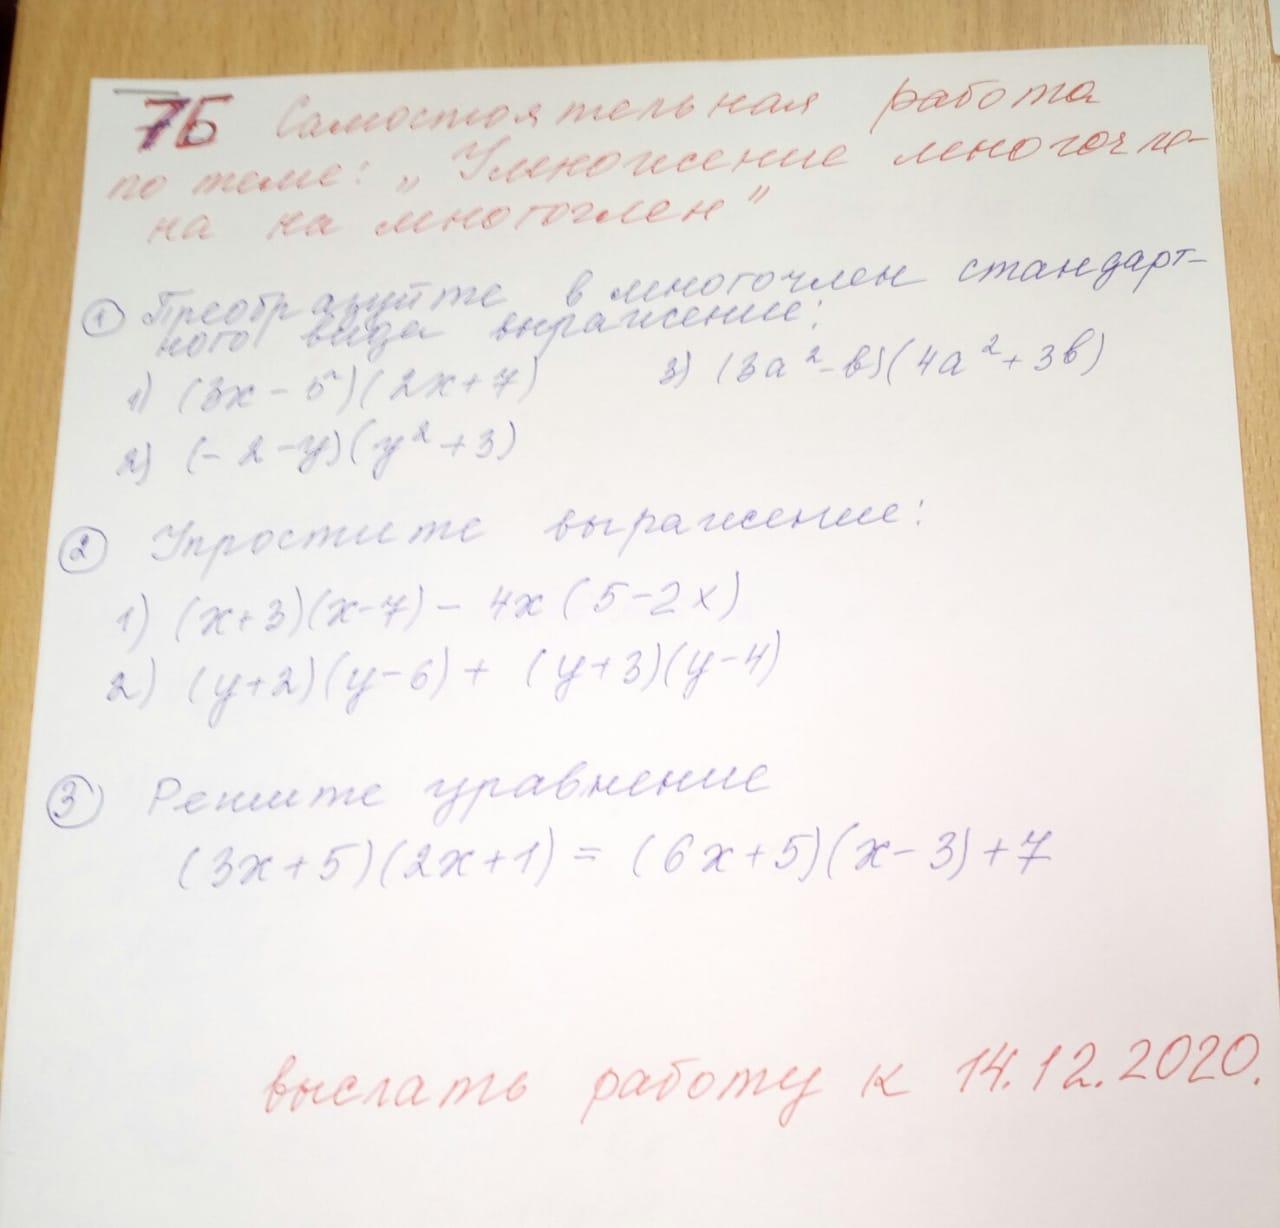 7Б Самостоятельная работа
по теме: „Умножение многочле-
на на многочлен”
① Преобразуйте в многочлен стандарт-
ного вида выражение:
1) (3x - 5)(2x+7) 3) (3a² - b)(4a² + 3b)
2) (- 2 - y)(y² + 3)
② Упростите выражение:
1) (x+3)(x-7) - 4x (5-2x)
2) (y+2)(y-6) + (y+3)(y-4)
③ Решите уравнение
(3x+5)(2x+1) = (6x+5)(x-3)+7
выслать работу к 14.12.2020.